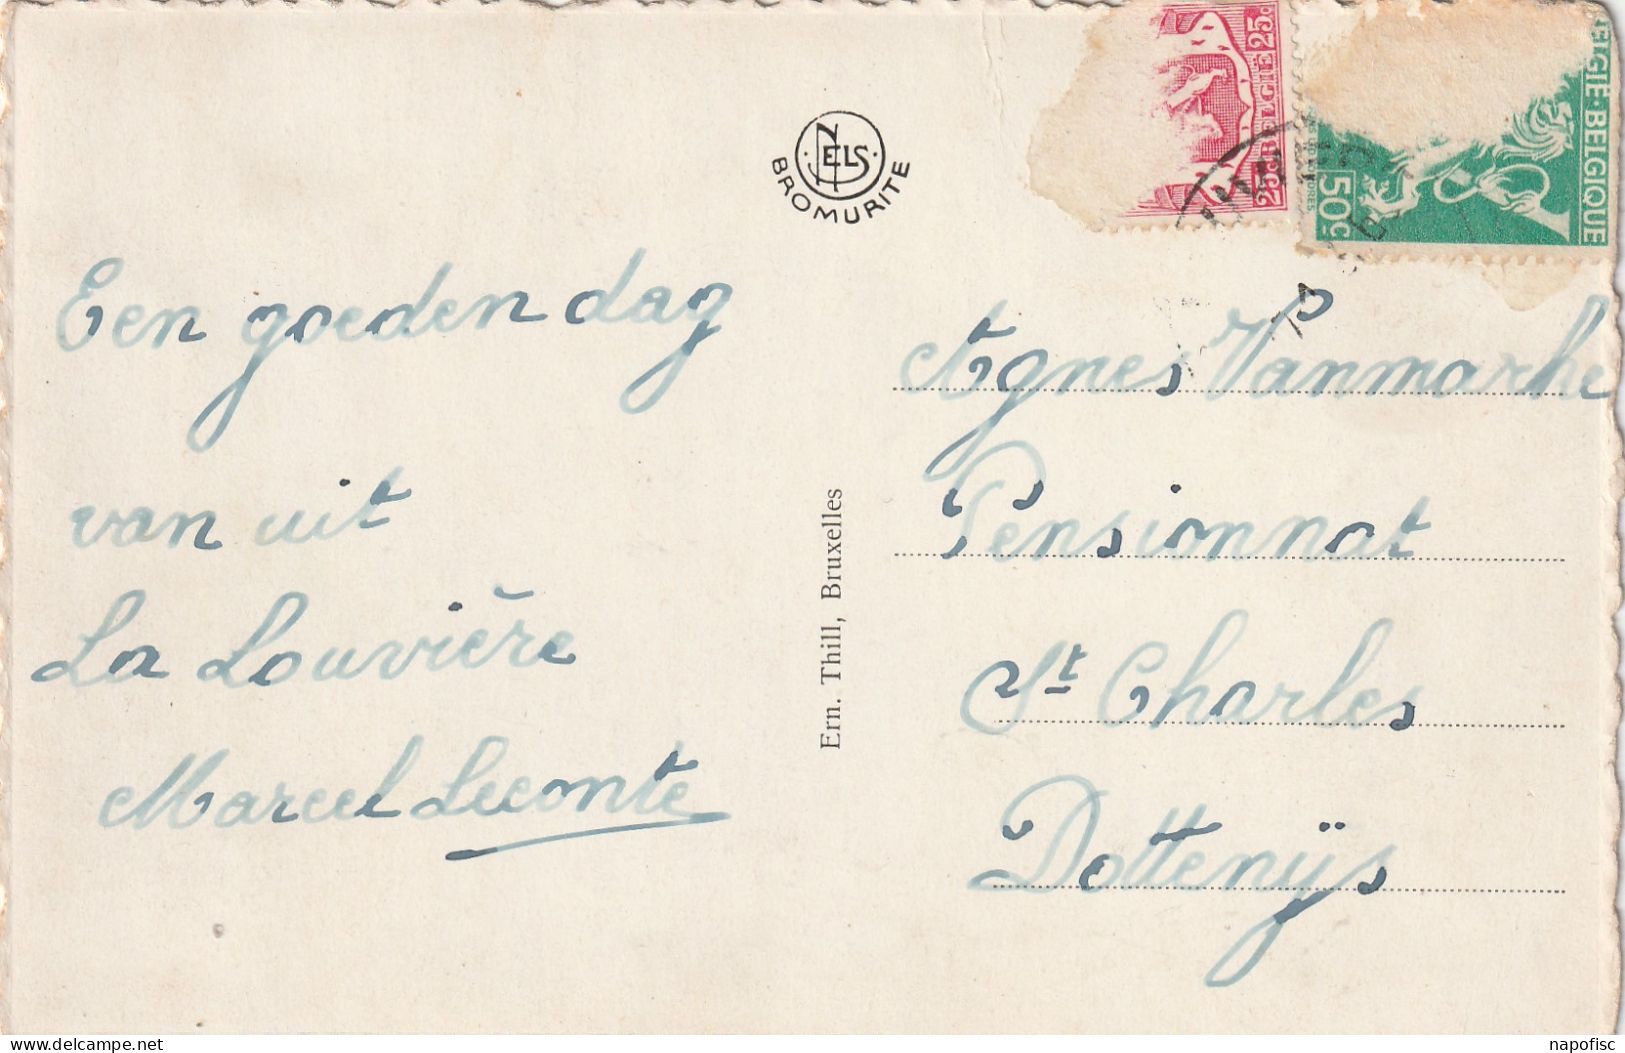 NELS
BROMURITE
25c BELGIE 25c
BELGIE·BELGIQUE
50c
Een goeden dag
van uit
La Louvière
Marcel Leconte
Ern. Thill, Bruxelles
Agnes Vanmarhe
Pensionnat
St Charles
Dottenÿs
delcampe.net
napofisc